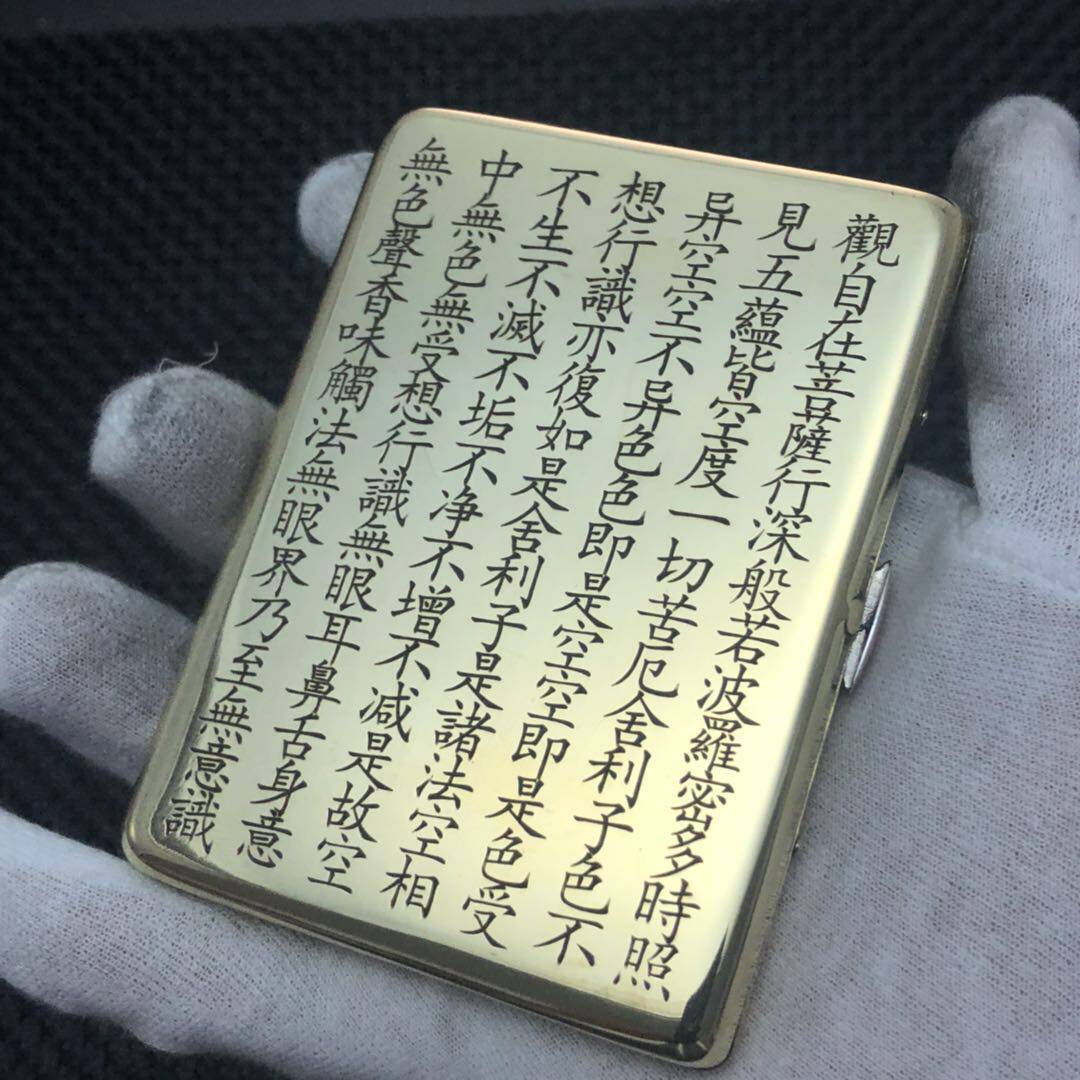 觀自在菩薩行深般若波羅密多時照
見五蘊皆空度一切苦厄舍利子色不
异空空不异色色即是空空即是色受
想行識亦復如是舍利子是諸法空相
不生不滅不垢不净不增不减是故空
中無色無受想行識無眼耳鼻舌身意
無色聲香味觸法無眼界乃至無意識